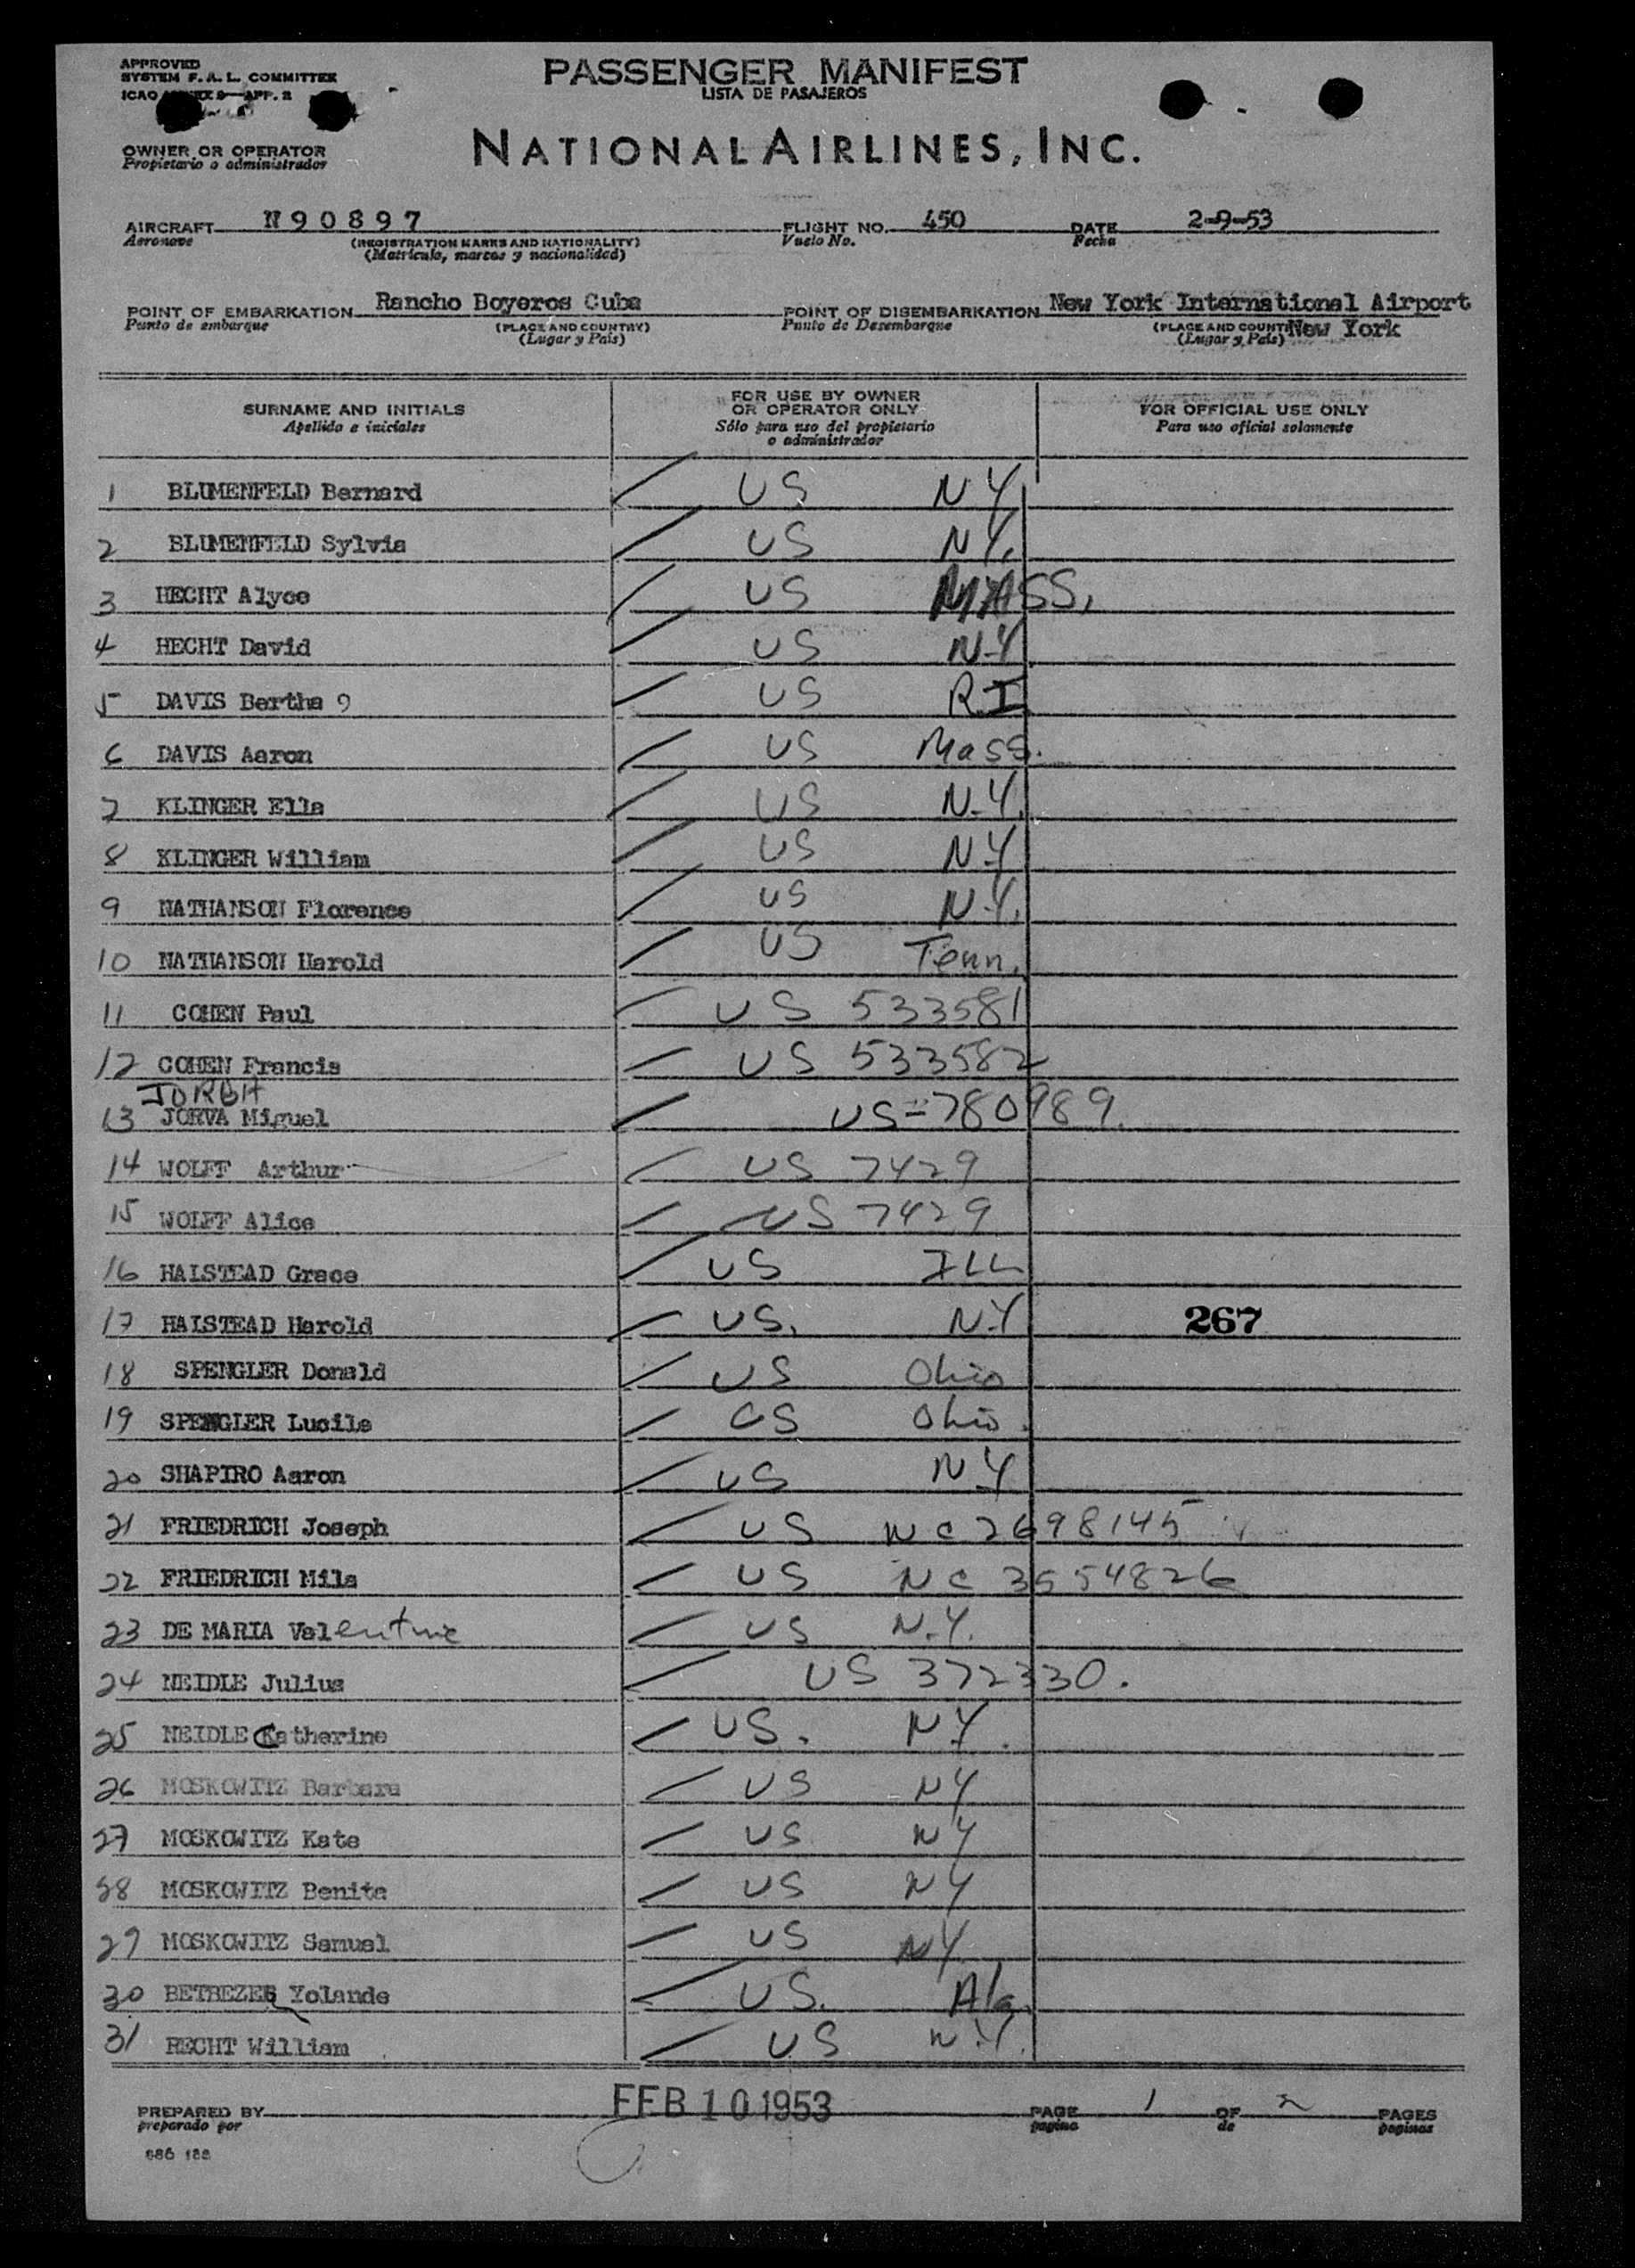 APPROVED
SYSTEM F. A. L. COMMITTEE
ICAO ANNEX 9—APP. 2
PASSENGER MANIFEST
LISTA DE PASAJEROS
OWNER OR OPERATOR
Propietario o administrador
NATIONAL AIRLINES, INC.
AIRCRAFT N90897 FLIGHT NO. 450 DATE 2-9-53
Aeronave (REGISTRATION MARKS AND NATIONALITY) Vuelo No. Fecha
(Matrícula, marcas y nacionalidad)
POINT OF EMBARKATION Rancho Boyeros Cuba POINT OF DISEMBARKATION New York International Airport
Punto de embarque (PLACE AND COUNTRY) Punto de Desembarque (PLACE AND COUNT New York
(Lugar y País) (Lugar y País)
SURNAME AND INITIALS FOR USE BY OWNER OR OPERATOR ONLY FOR OFFICIAL USE ONLY
Apellido e iniciales Sólo para uso del propietario o administrador Para uso oficial solamente
1 BLUMENFELD Bernard US NY
2 BLUMENFELD Sylvia US NY.
3 HECHT Alyce US MASS.
4 HECHT David US N-Y
5 DAVIS Bertha 9 US R.I
6 DAVIS Aaron US Mass.
7 KLINGER Ella US N-Y.
8 KLINGER William US N-Y
9 NATHANSON Florence US N-Y.
10 NATHANSON Harold US Tenn.
11 COHEN Paul US 533581
12 COHEN Francis US 533582
JORBA
13 JORVA Miguel US-780989.
14 WOLFF Arthur US 7429
15 WOLFF Alice US 7429
16 HALSTEAD Grace US ILL
17 HALSTEAD Harold US. N-Y 267
18 SPENGLER Donald US Ohio
19 SPENGLER Lucile US Ohio.
20 SHAPIRO Aaron US N-Y
21 FRIEDRICH Joseph US NC 2698145
22 FRIEDRICH Mila US NC 3554826
23 DE MARIA Valentine US N.Y.
24 NEIDLE Julius US 372330.
25 NEIDLE Catherine US. N-Y.
26 MOSKOWITZ Barbara US NY
27 MOSKOWITZ Kate US NY
28 MOSKOWITZ Benita US NY
29 MOSKOWITZ Samuel US NY
30 BETBEZE Yolande US. Ala.
31 RECHT William US N.Y.
PREPARED BY FEB 10 1953 PAGE 1 OF 2 PAGES
preparado por pagina de paginas